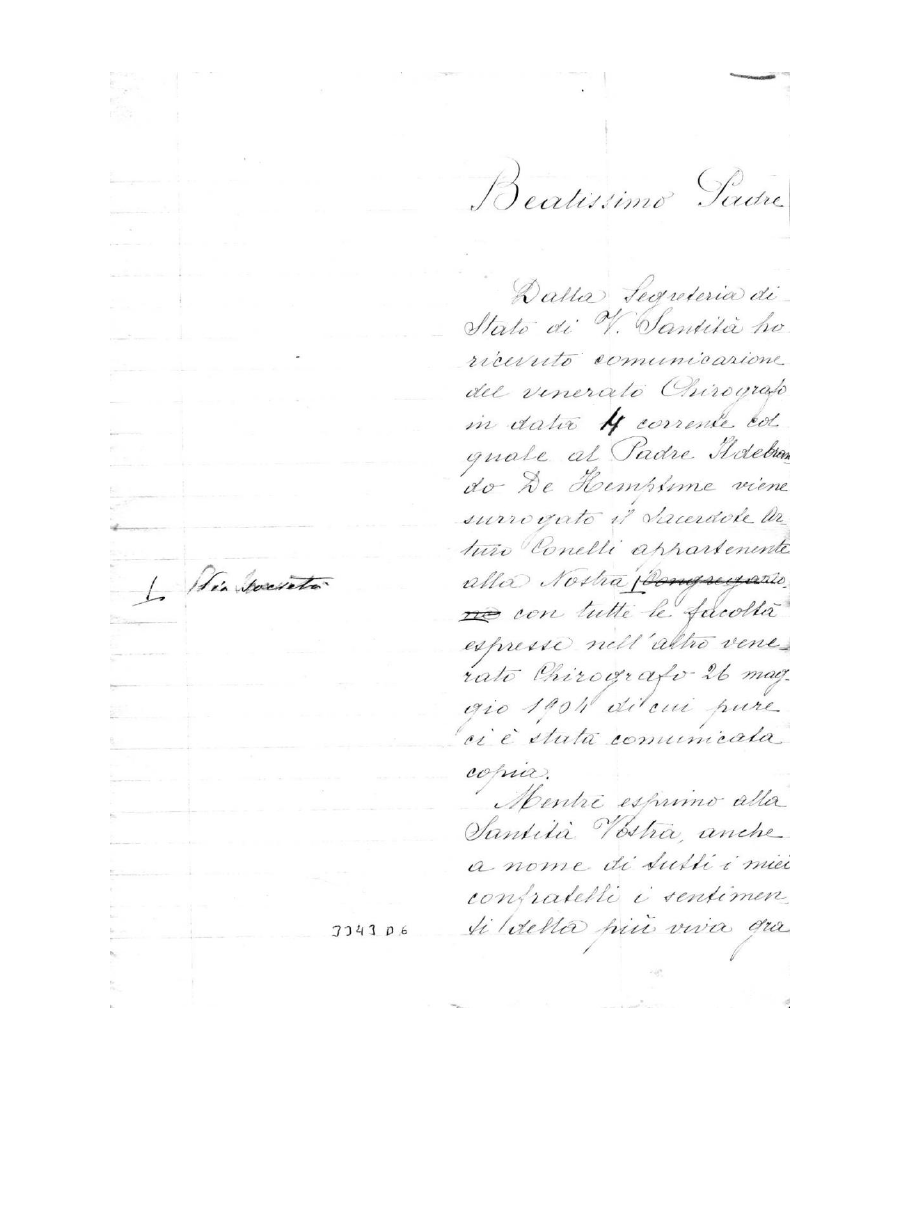 Beatissimo Padre
Dalla Segreteria di
Stato di V. Santità ho
ricevuto comunicazione
del venerato Chirografo
in data 4 corrente col
quale al Padre Ildebran
do De Hemptinne viene
surrogato il Sacerdote Ar
turo Conelli appartenente
alla Nostra Congregazio
ne con tutte le facoltà
espresse nell'altro vene
rato Chirografo 26 mag-
gio 1904 di cui pure
ci è stata comunicata
copia.
Mentre esprimo alla
Santità Vostra, anche
a nome di tutti i miei
confratelli i sentimen
ti della più viva gra
Pia Società
3343 D 6